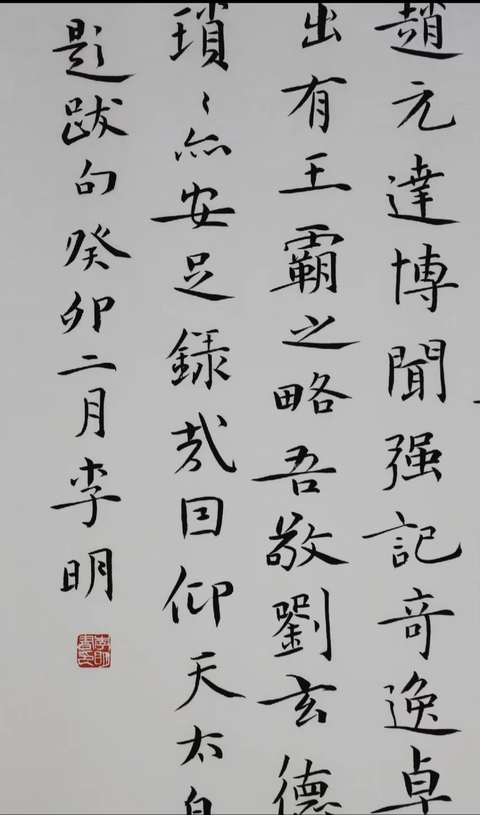 趙元達博聞强記奇逸卓
出有王霸之略吾敬劉玄德
瑣〻亦安足録哉囙仰天太
題跋句癸卯二月李明